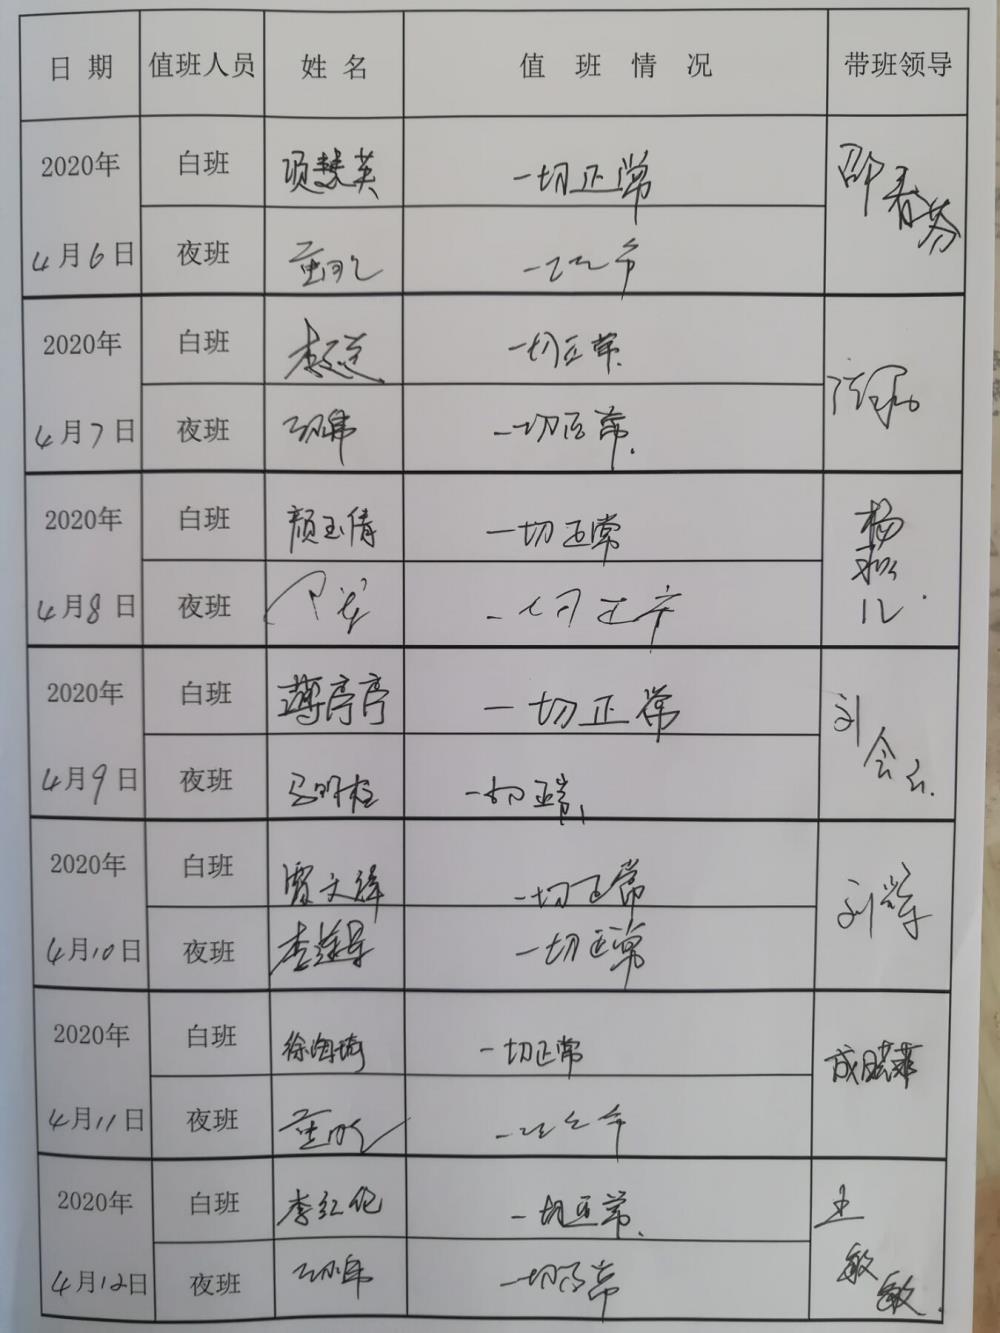 日 期 值班人员 姓 名 值 班 情 况 带班领导
2020年 白班 项慧英 一切正常 邵春芬
4月6日 夜班
2020年 白班 一切正常
4月7日 夜班 一切正常
2020年 白班 颜玉倩 一切正常 杨
4月8日 夜班 一切正常
2020年 白班 薄亭亭 一切正常 刘会云
4月9日 夜班 马明柱 一切正常
2020年 白班 贾文锋 一切正常 刘
4月10日 夜班 李 一切正常
2020年 白班 徐海琦 一切正常 成晓菲
4月11日 夜班
2020年 白班 李红伦 一切正常 王敏敏
4月12日 夜班 一切正常